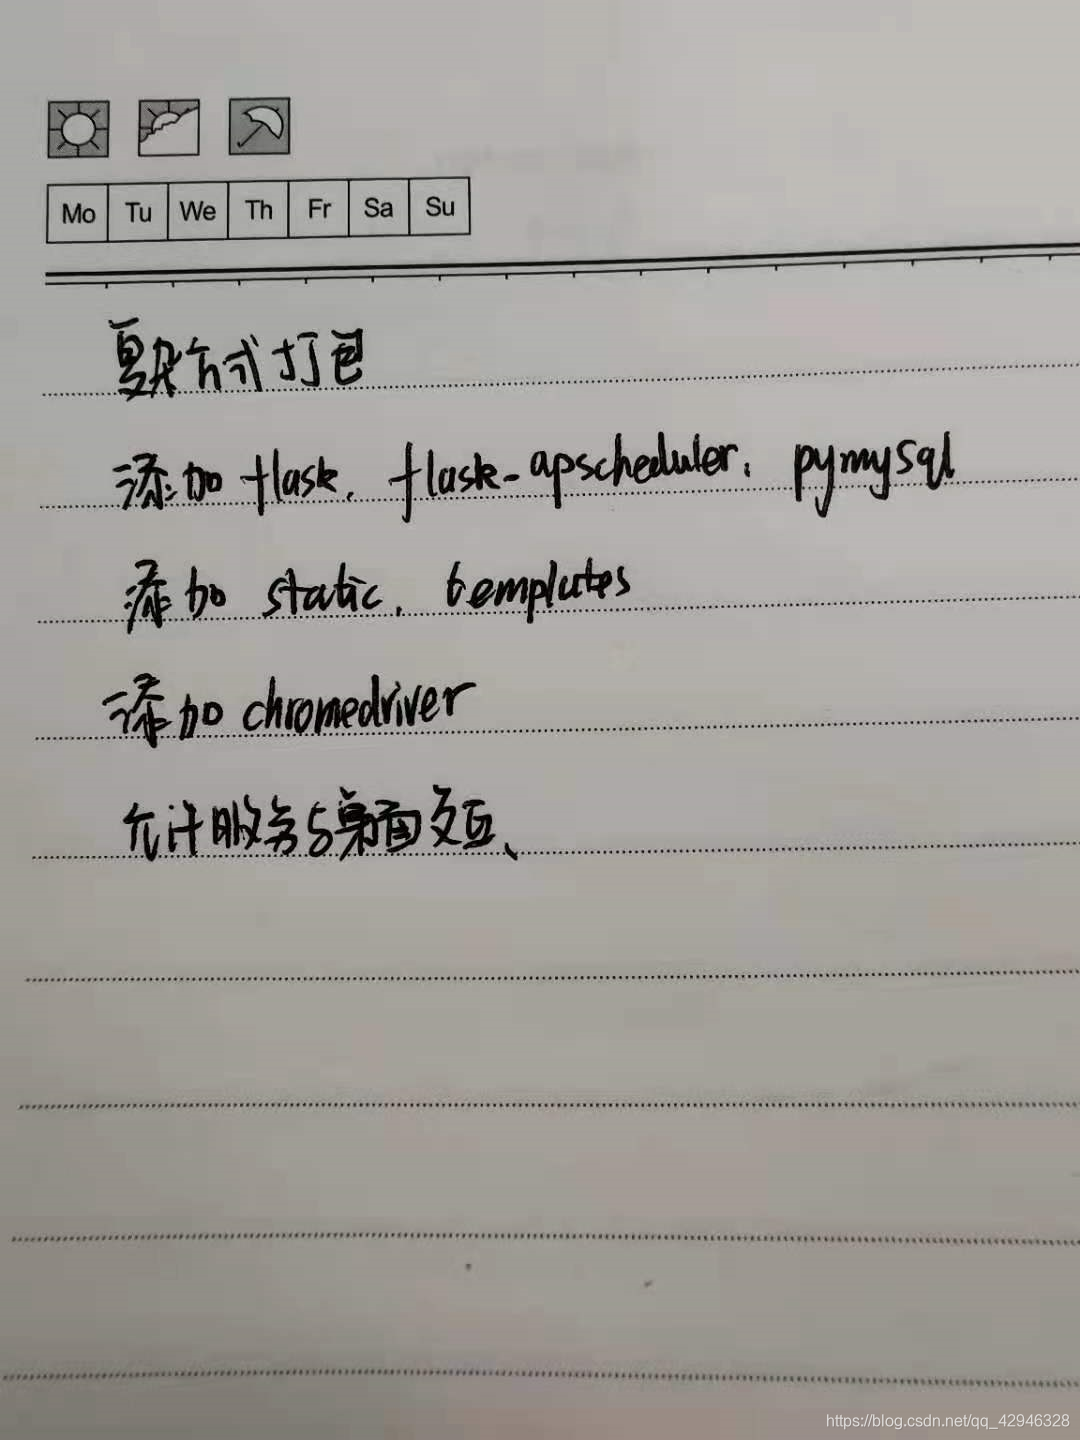 Mo Tu We Th Fr Sa Su
复杂方式打包
添加 flask. flask-apscheduler. pymysql
添加 static. templates
添加 chromedriver
允许服务与桌面交互、
https://blog.csdn.net/qq_42946328